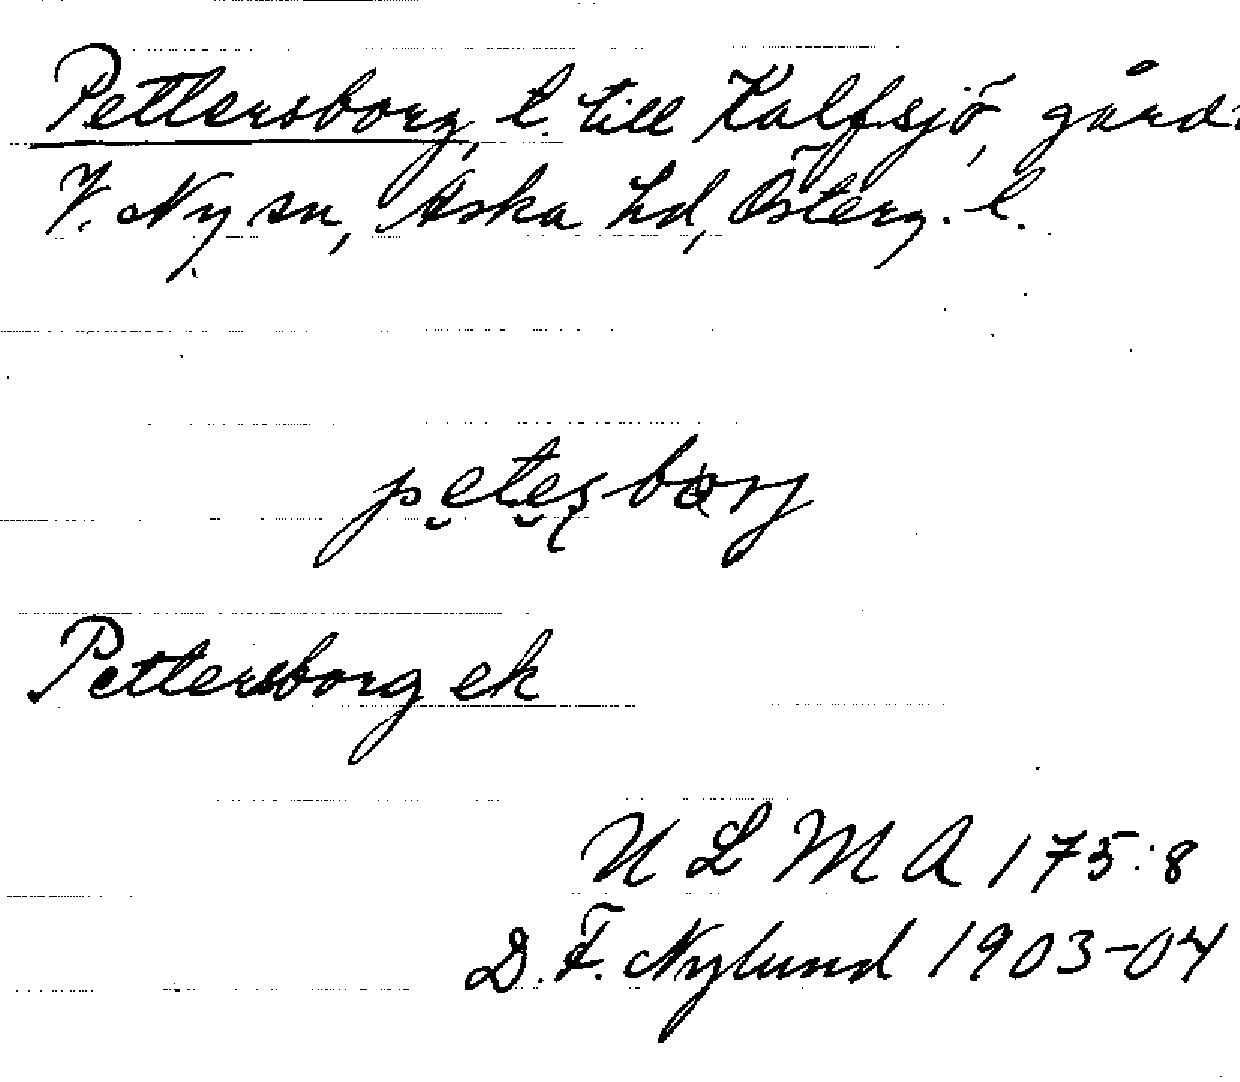 Pettersborg, l. till Kalfsjö, gård
V. Ny sn, Aska hd, Österg. l.
petersborg
Pettersborg ek
U L M A 175:8
D. F. Nylund 1903-04